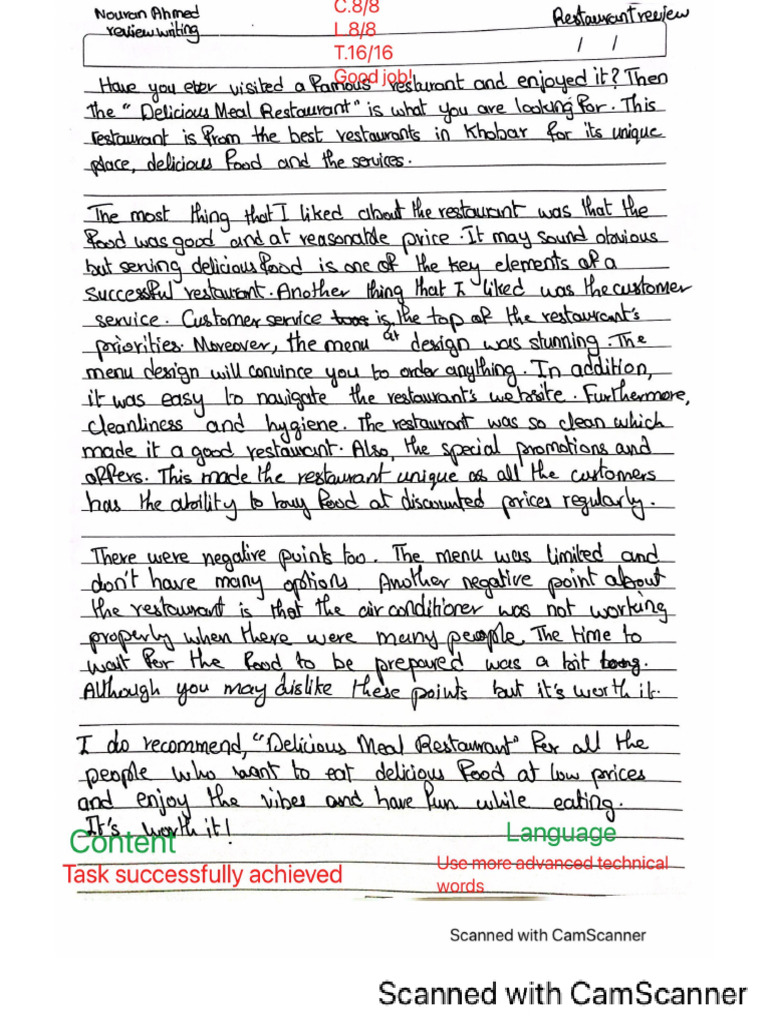 Nouran Ahmed
review writing
C.8/8
L.8/8
T.16/16
Good job!
Restaurant review
/ /
Have you ever visited a famous restaurant and enjoyed it? Then
the "Delicious Meal Restaurant" is what you are looking for. This
restaurant is from the best restaurants in Khobar for its unique
place, delicious food and the services.
The most thing that I liked about the restaurant was that the
food was good and at reasonable price. It may sound obvious
but serving delicious food is one of the key elements of a
successful restaurant. Another thing that I liked was the customer
service. Customer service is the top of the restaurant's
priorities. Moreover, the menu at design was stunning. The
menu design will convince you to order anything. In addition,
it was easy to navigate the restaurant's website. Furthermore,
cleanliness and hygiene. The restaurant was so clean which
made it a good restaurant. Also, the special promotions and
offers. This made the restaurant unique as all the customers
has the ability to buy food at discounted prices regularly.
There were negative points too. The menu was limited and
don't have many options. Another negative point about
the restaurant is that the air conditioner was not working
properly when there were many people. The time to
wait for the food to be prepared was a bit long.
Although you may dislike these points but it's worth it.
I do recommend, "Delicious Meal Restaurant" for all the
people who want to eat delicious food at low prices
and enjoy the vibes and have fun while eating.
It's worth it!
Content
Language
Task successfully achieved
Use more advanced technical
words
Scanned with CamScanner
Scanned with CamScanner